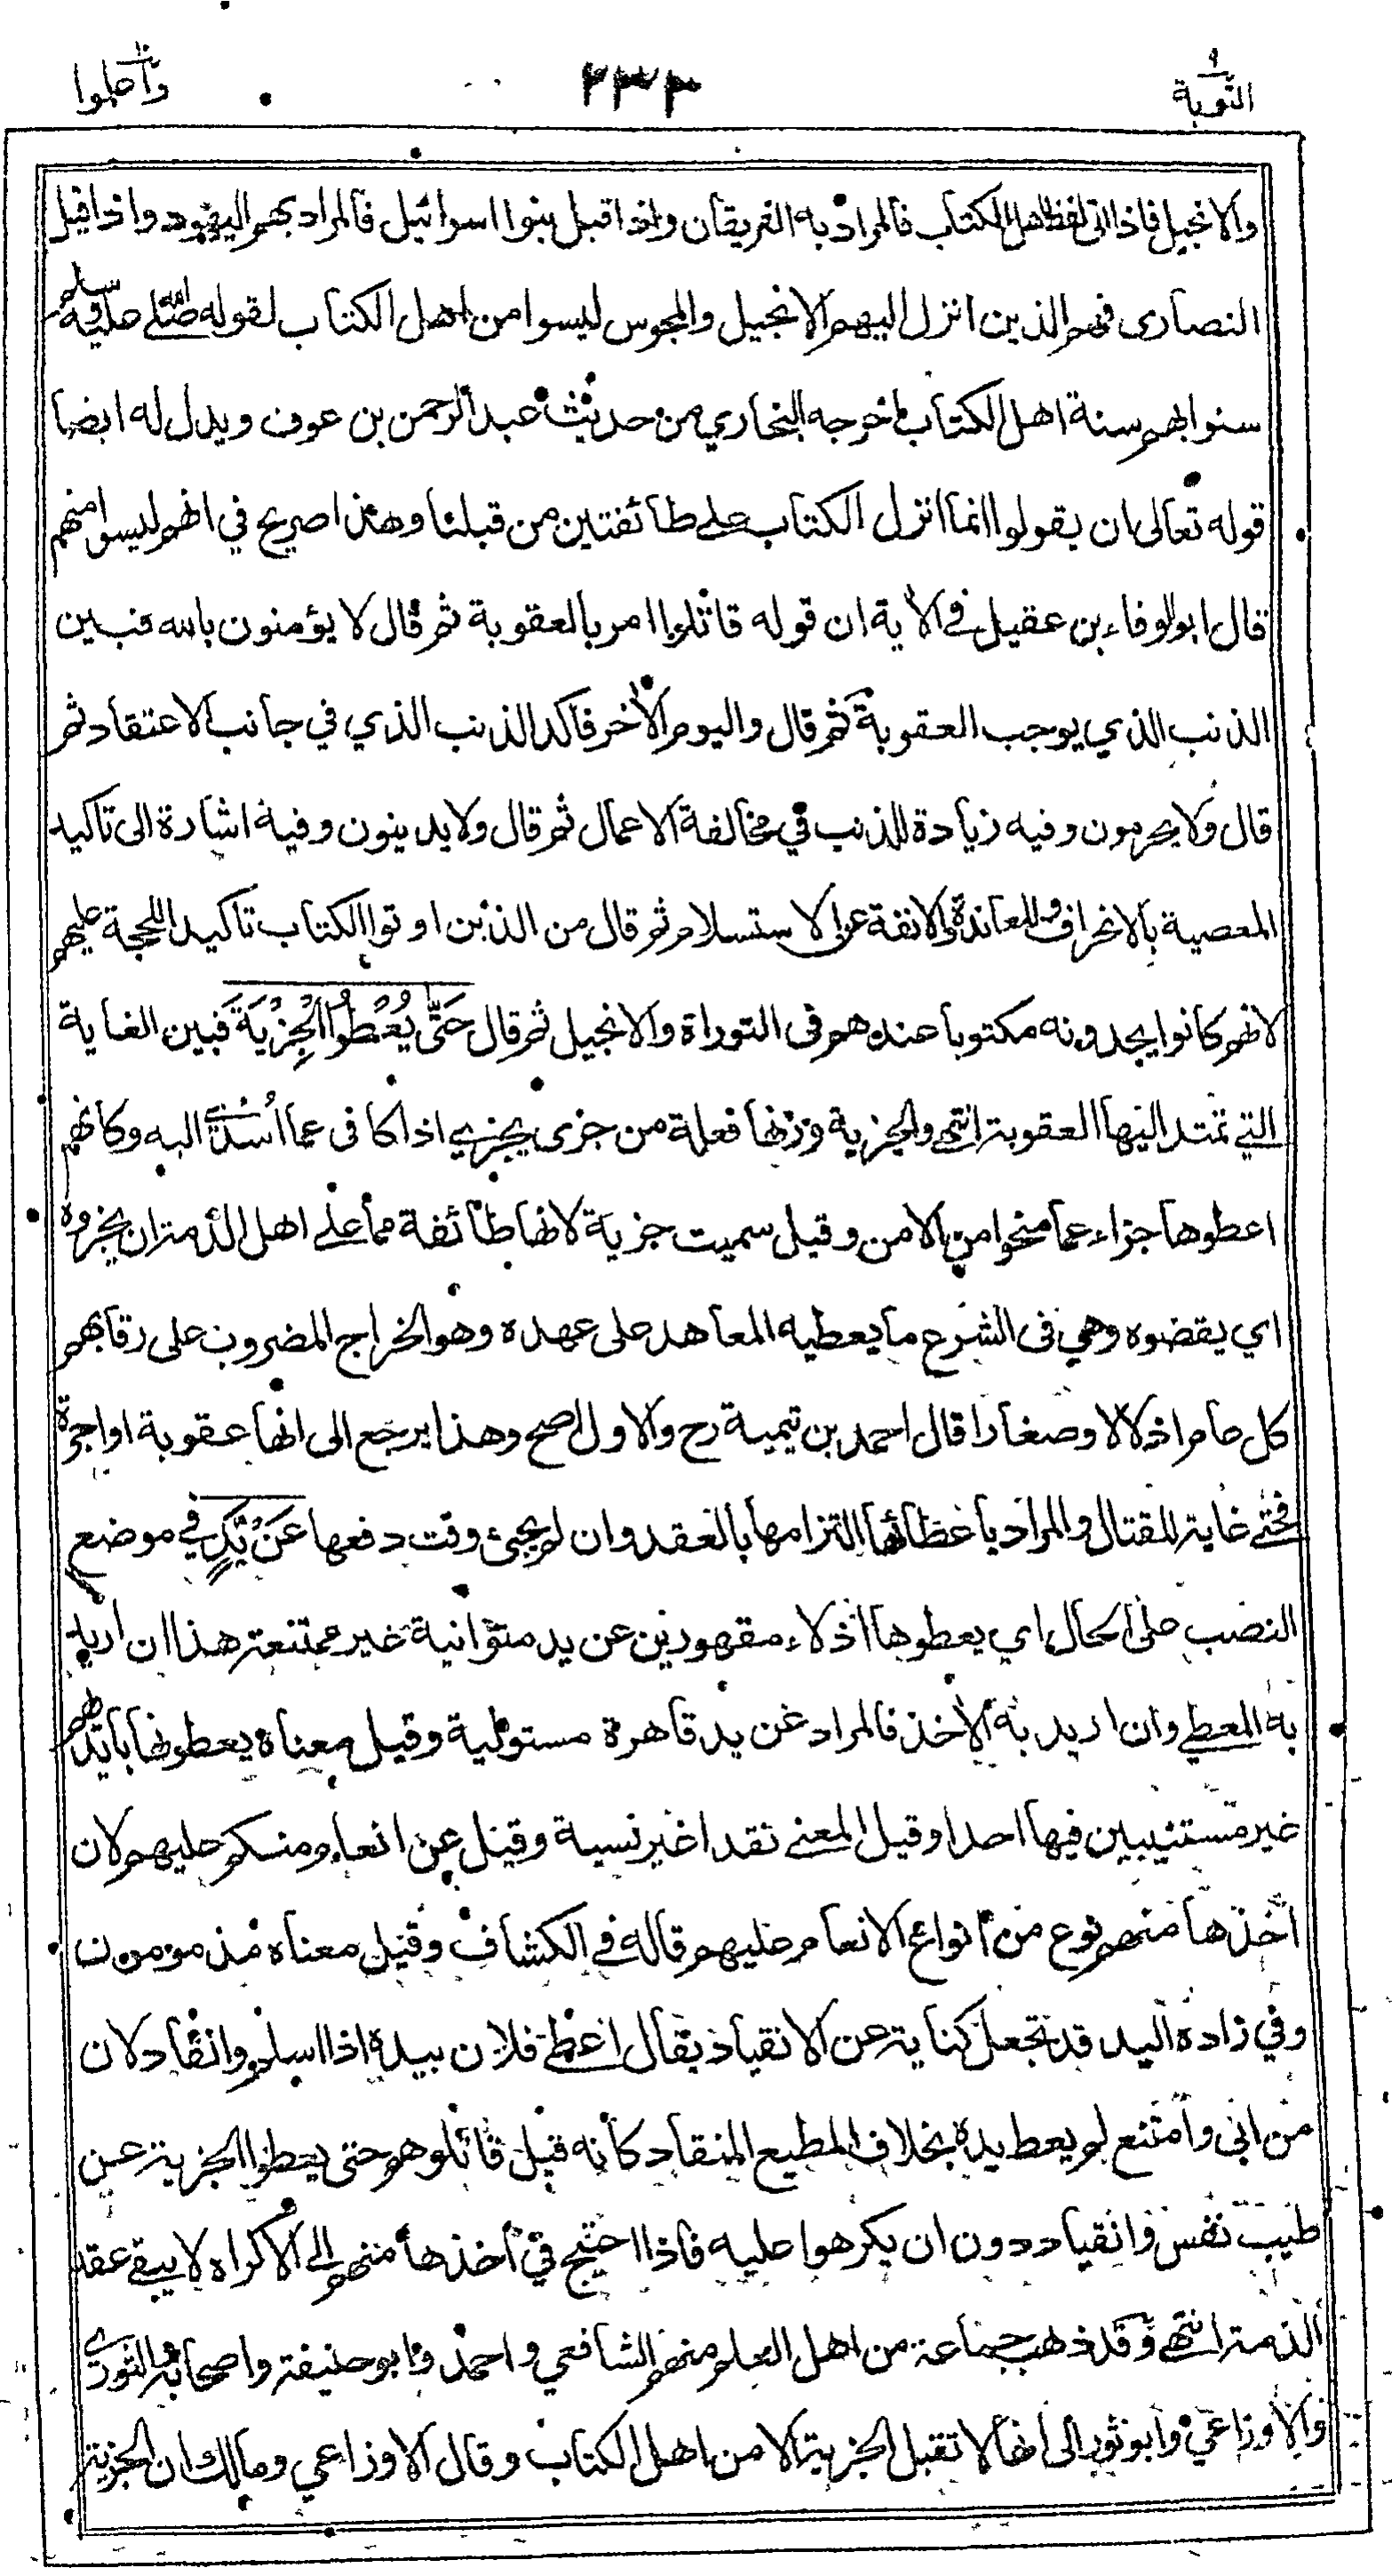 التوبة ٩
٢٣٣
واعلموا ١٠
والانجيل فاذا اتى لفظ اهل الكتاب فالمراد به الفريقان واذا قيل بنوا اسرائيل فالمراد بهم اليهود واذا قيل
النصارى فهم الذين انزل اليهم الانجيل والمجوس ليسوا من اهل الكتاب لقوله صلى الله عليه وسلم
سنوا بهم سنة اهل الكتاب اخرجه البخاري من حديث عبد الرحمن بن عوف ويدل له ايضا
قوله تعالى ان يقولوا انما انزل الكتاب على طائفتين من قبلنا وهذا صريح في انهم ليسوا منهم
قال ابو الوفاء بن عقيل في الآية ان قوله قاتلوا امر بالعقوبة ثم قال لا يؤمنون بالله فبين
الذنب الذي يوجب العقوبة ثم قال واليوم الآخر فاكد الذنب الذي في جانب الاعتقاد ثم
قال ولا يحرمون وفيه زيادة للذنب في مخالفة الاعمال ثم قال ولا يدينون وفيه اشارة الى تاكيد
المعصية بالانحراف والمعاندة والانفة عن الاستسلام ثم قال من الذين اوتوا الكتاب تاكيدا للحجة عليهم
لانهم كانوا يجدونه مكتوبا عندهم في التوراة والانجيل ثم قال حَتَّى يُعْطُوا الْجِزْيَةَ فبين الغاية
التي تمتد اليها العقوبة انتهى والجزية وزنها فعلة من جزى يجزي اذا كافى عما اُسْدِيَ اليه وكانهم
اعطوها جزاء عما منحوا من الامن وقيل سميت جزية لانها طائفة مما على اهل الذمة ان يجزوه
اي يقضوه وهي في الشرع ما يعطيه المعاهد على عهده وهو الخراج المضروب على رقابهم
كل عام اذلالا وصغارا قال احمد بن تيمية رح والاول اصح وهذا يرجع الى انها عقوبة او اجرة
فحتى غاية للقتال والمراد باعطائها التزامها بالعقد وان لم يجئ وقت دفعها عَنْ يَدٍ في موضع
النصب على الحال اي يعطوها اذلاء مقهورين عن يد متوانية غير ممتنعة هذا ان اريد
به المعطي وان اريد به الآخذ فالمراد عن يد قاهرة مستولية وقيل معناه يعطونها بايديهم
غير مستنيبين فيها احدا وقيل المعنى نقدا غير نسية وقيل عن انعام منكم عليهم لان
اخذها منهم نوع من انواع الانعام عليهم قاله في الكشاف وقيل معناه مذمومون
وفي زاده اليد قد تجعل كناية عن الانقياد يقال اعطى فلان بيده اذا اسلم وانقاد لان
من ابى وامتنع لم يعط يده بخلاف المطيع المنقاد كأنه قيل قاتلوهم حتى يعطوا الجزية عن
طيب نفس وانقياد دون ان يكرهوا عليه فاذا احتيج في اخذها منهم الى الاكراه لا يبقى عقد
الذمة انتهى وقد ذهب جماعة من اهل العلم منهم الشافعي واحمد وابو حنيفة واصحابه والثوري
والاوزاعي وابو ثور الى انها لا تقبل الجزية الا من اهل الكتاب وقال الاوزاعي ومالك ان الجزية